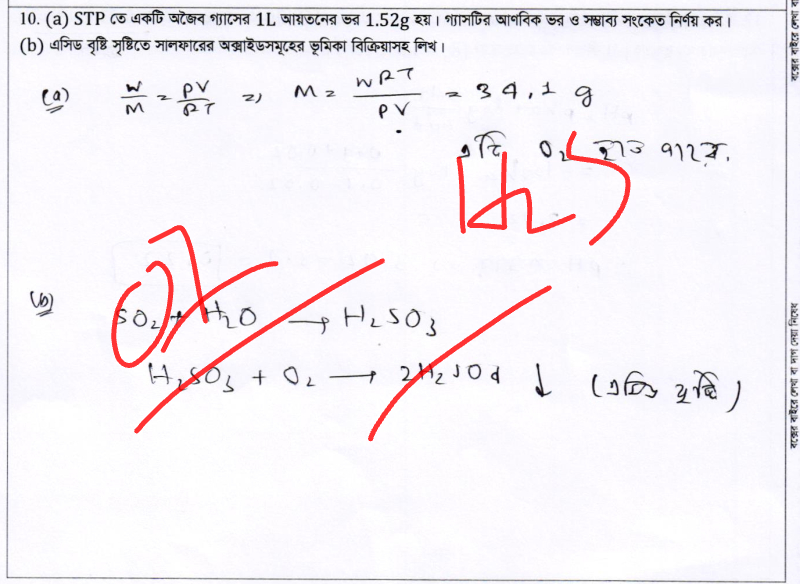 10. (a) STP তে একটি অজৈব গ্যাসের 1L আয়তনের ভর 1.52g হয়। গ্যাসটির আণবিক ভর ও সম্ভাব্য সংকেত নির্ণয় কর।
(b) এসিড বৃষ্টি সৃষ্টিতে সালফারের অক্সাইডসমূহের ভূমিকা বিক্রিয়াসহ লিখ।
(a) W/M = PV/RT => M = WRT/PV = 34.1 g
এটি O₂ হতে পারে.
H₂S
(b)
SO₂ + H₂O → H₂SO₃
H₂SO₃ + O₂ → 2H₂SO4 ↓ (এসিড বৃষ্টি)
বক্সের বাইরে লেখা বা দাগ দেয়া নিষেধ